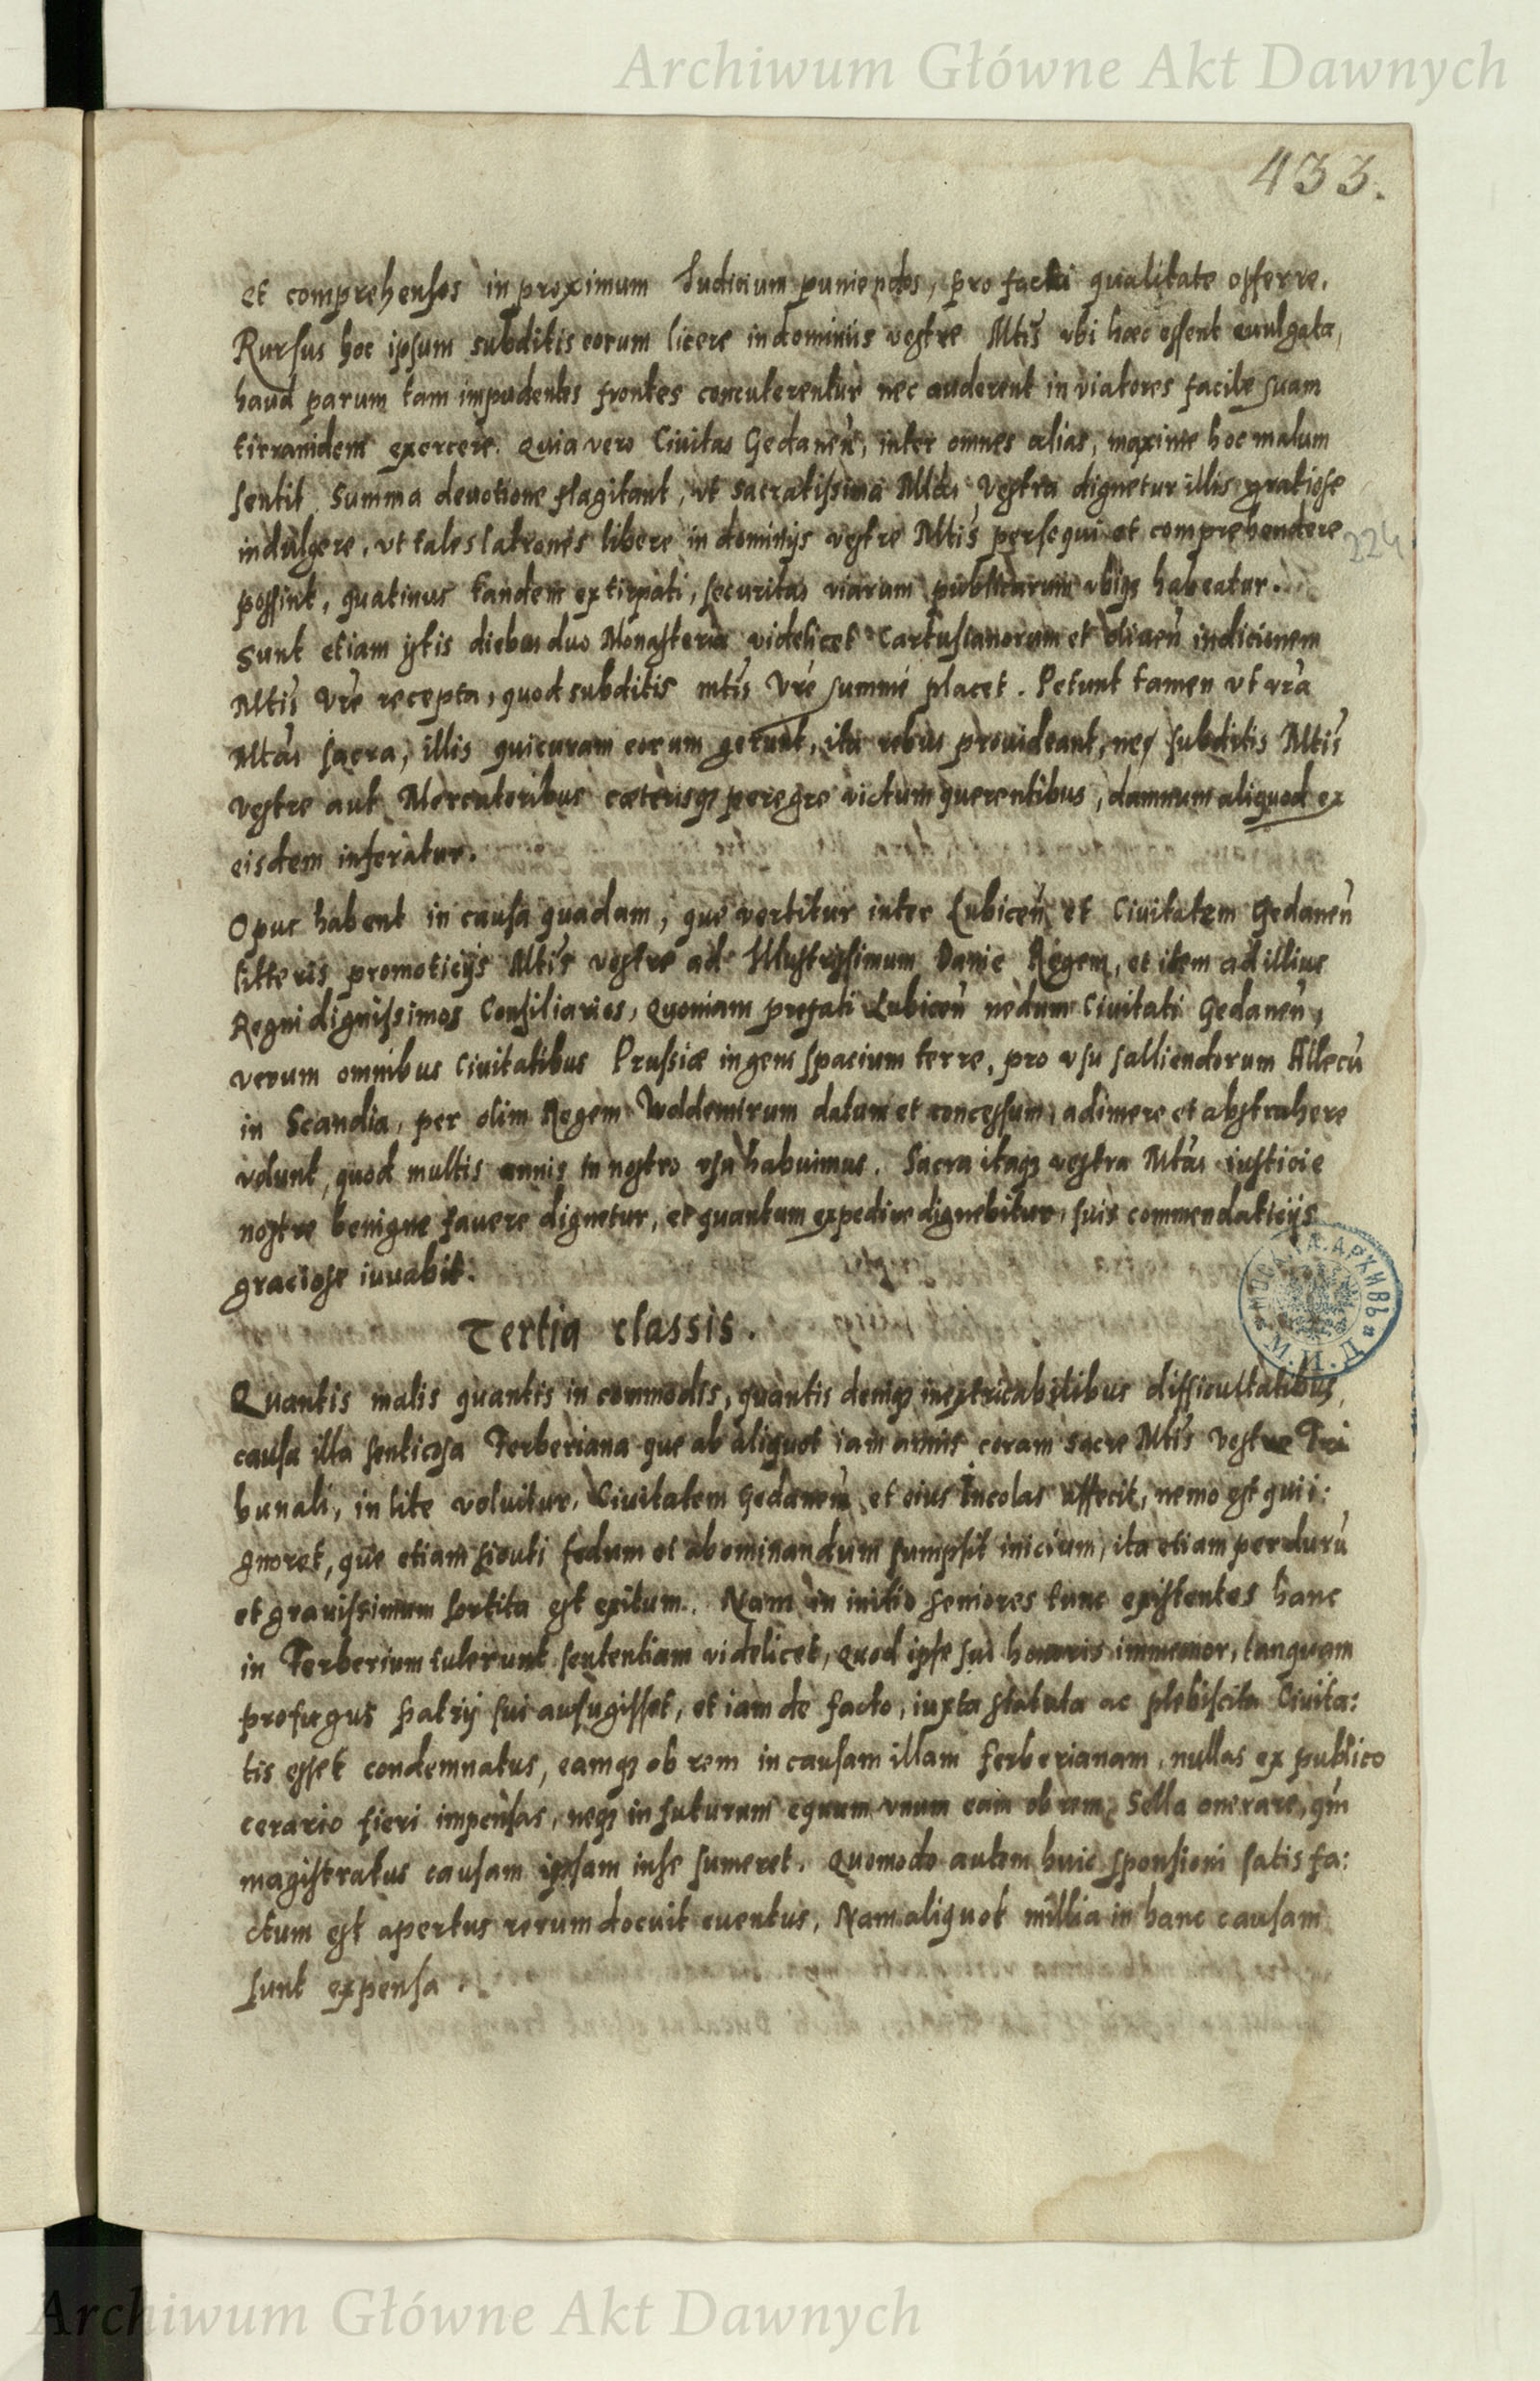 Archiwum Główne Akt Dawnych
433.
et comprehensos in proximum Iudicium puniendos, pro facti qualitate offerre.
Rursus hoc ipsum subditis eorum licere in dominiis vestre Mtis vbi hæc essent euulgata,
haud parum tam impudentes frontes concuterentur nec auderent in viatores facile suam
tirranidem exercere. Quia vero Ciuitas Gedaneñ, inter omnes alias, maxime hoc malum
sentit. Summa deuotione flagitant, vt sacratissima Mtas Vestra dignetur illis gratiose
indulgere, vt tales latrones libere in dominijs vestre Mtis persequi et comprehendere
224
possint, quatinus tandem extirpati, securitas viarum publicarum vbiqȝ habeatur.
Sunt etiam ijtis diebus duo Monasteria videlicet Cartusianorum et Oliueñ in dicionem
Mtis Vre recepta, quod subditis mtis Vre summe placet. Petunt tamen vt vra
Mtas sacra, illis qui curam eorum gerunt, ita rebus prouideant, ne subditis Mtis
vestre aut Mercatoribus cæterisqȝ peregre victum querentibus, damnum aliquod ex
eisdem inferatur.
Opus habent in causa quadam, que vertitur inter Lubiceñ et Ciuitatem Gedaneñ
litteris promoticijs Mtis vestre ad Illustrissimum Danie Regem, et item ad illius
Regni dignissimos Consiliarios, Quoniam prefati Lubiceñ nedum Ciuitati Gedaneñ,
verum omnibus Ciuitatibus Prussiæ ingens spacium terre, pro vsu salliendorum Allecũ
in Scandia, per olim Regem Woldemirum datum et concessum, adimere et abstrahere
volunt, quod multis annis in nostro vsu habuimus. Sacra itaqȝ vestra Mtas iusticie
nostre benigne fauere dignetur, et quantum expedire dignebitur, suis commendaticijs
graciose iuuabit.
Tertia classis.
Quantis malis quantis incommodis, quantis deniqȝ inextricabilibus difficultatibus,
causa illa senticosa Ferberiana que ab aliquot iam annis coram sacre Mtis Vestre Tri
bunali, in lite voluitur, Ciuitatem Gedaneñ et eius Incolas affecit, nemo est qui i:
gnoret, que etiam sicuti fedum et abominandum sumpsit inicium, ita etiam perdurũ
et grauissimum sortita est exitum. Nam in initio seniores tunc existentes hanc
in Ferberium tulerunt sententiam videlicet, quod ipse sui honoris immemor, tanquam
profugus patrij sui aufugisset, et iam de facto, iuxta statuta ac plebiscita Ciuita:
tis esset condemnatus, eamqȝ ob rem in causam illam ferberianam, nullas ex publico
cerario fieri impensas, neqȝ in futurum equum vnum eam ob rem, Sella onerare, qm
magistratus causam ipsam in se sumeret. Quomodo autem huic sponsioni satis fa:
ctum est apertus rerum docuit euentus. Nam aliquot millia in hanc causam
sunt expensa.
Archiwum Główne Akt Dawnych